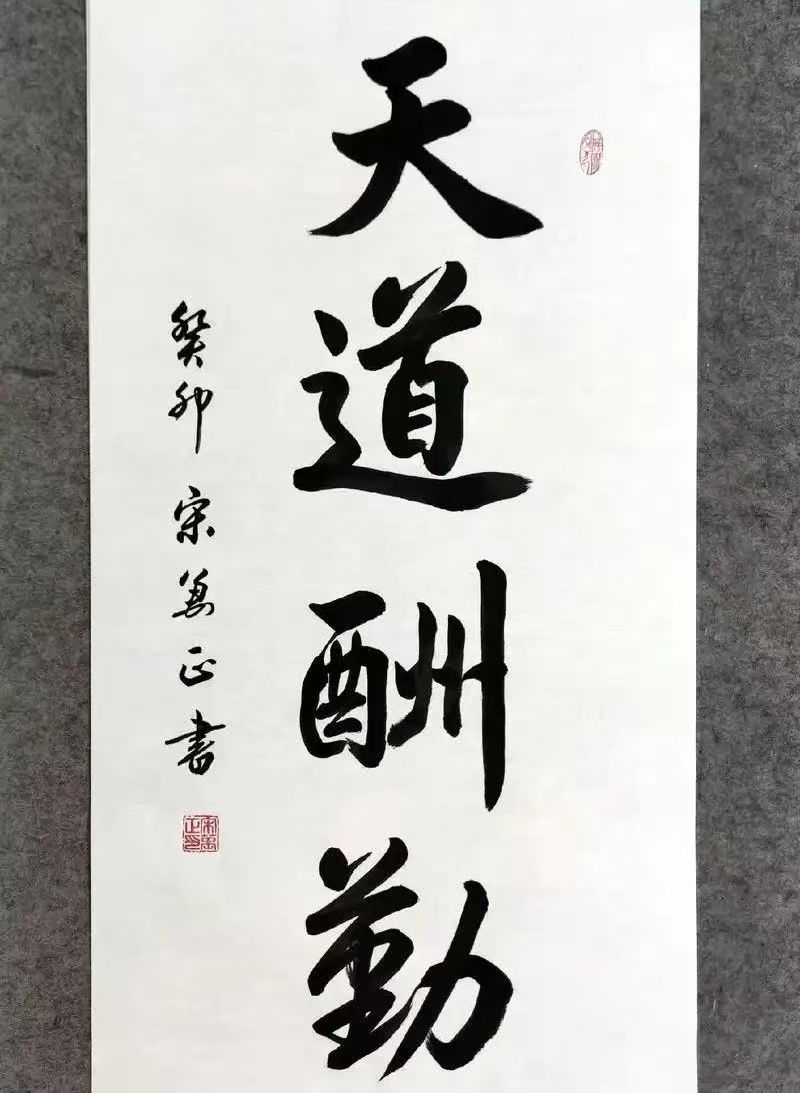 天道酬勤
癸卯宋萬正書